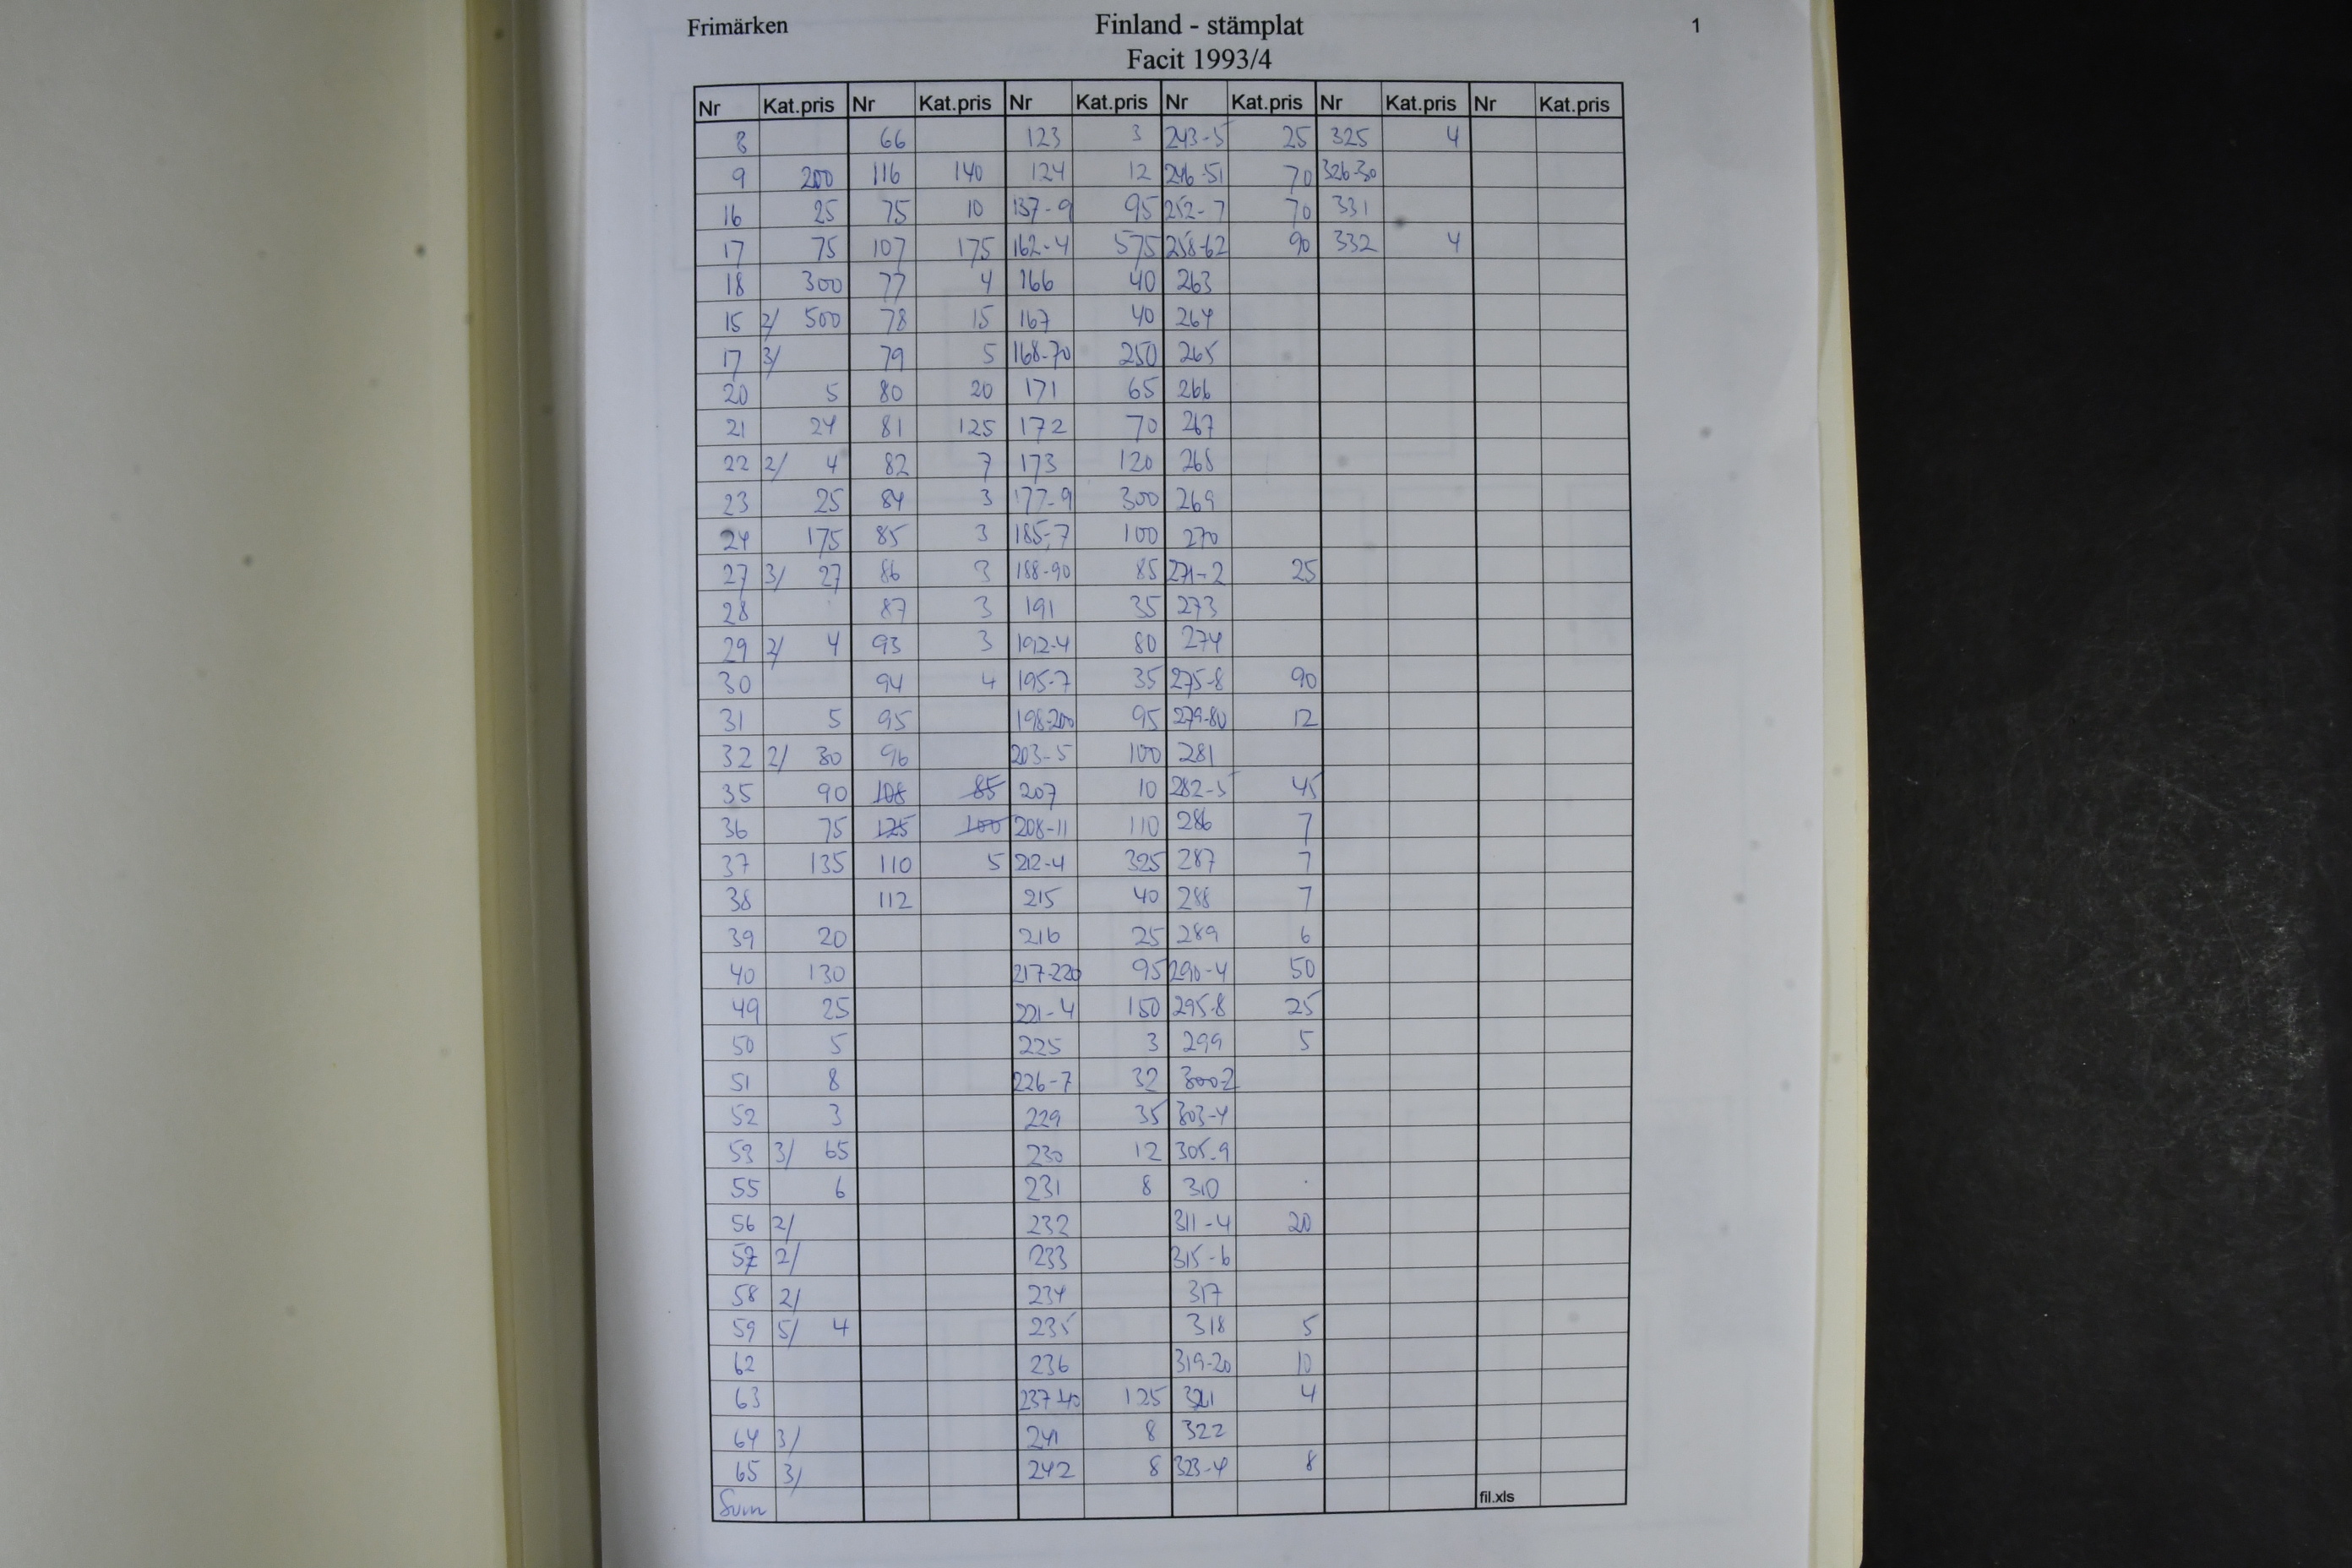 Frimärken Finland - stämplat 1
Facit 1993/4
Nr Kat.pris Nr Kat.pris Nr Kat.pris Nr Kat.pris Nr Kat.pris Nr Kat.pris
8 66 123 3 243-5 25 325 4
9 200 116 140 124 12 246-51 70 326-30
16 25 75 10 137-9 95 252-7 70 331
17 75 107 175 162-4 575 258-62 90 332 4
18 300 77 4 166 40 263
15 2/ 500 78 15 167 40 264
17 3/ 79 5 168-70 250 265
20 5 80 20 171 65 266
21 24 81 125 172 70 267
22 2/ 4 82 7 173 120 268
23 25 84 3 177-9 300 269
24 175 85 3 185-7 100 270
27 3/ 27 86 3 188-90 85 271-2 25
28 87 3 191 35 273
29 2/ 4 93 3 192-4 80 274
30 94 4 195-7 35 275-8 90
31 5 95 198-200 95 279-80 12
32 2/ 30 96 203-5 100 281
35 90 108 85 207 10 282-5 45
36 75 125 100 208-11 110 286 7
37 135 110 5 212-4 325 287 7
38 112 215 40 288 7
39 20 216 25 289 6
40 130 217-220 95 290-4 50
49 25 221-4 150 295-8 25
50 5 225 3 299 5
51 8 226-7 32 300-2
52 3 229 35 303-4
53 3/ 65 230 12 305-9
55 6 231 8 310
56 2/ 232 311-4 20
57 2/ 233 315-6
58 2/ 234 317
59 5/ 4 235 318 5
62 236 319-20 10
63 237-40 125 321 4
64 3/ 241 8 322
65 3/ 242 8 323-4 8
Sum fil.xls